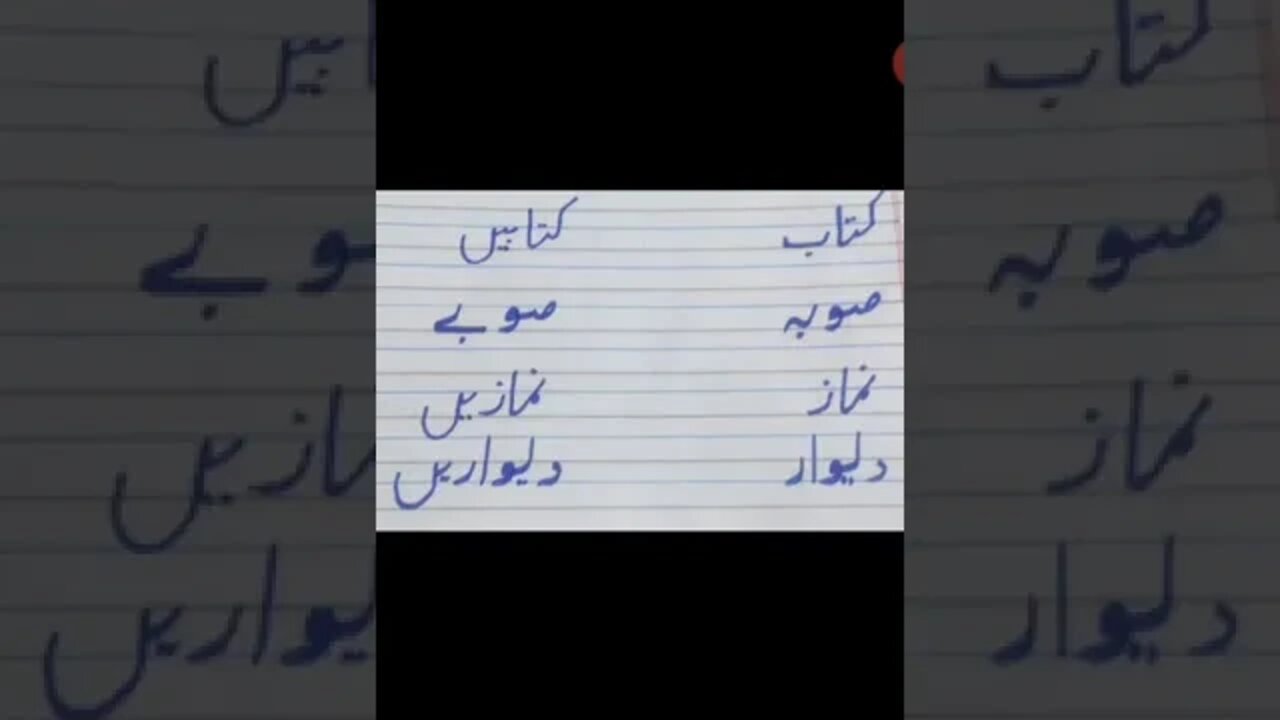 کتاب کتابیں
صوبہ صوبے
نماز نمازیں
دیوار دیواریں